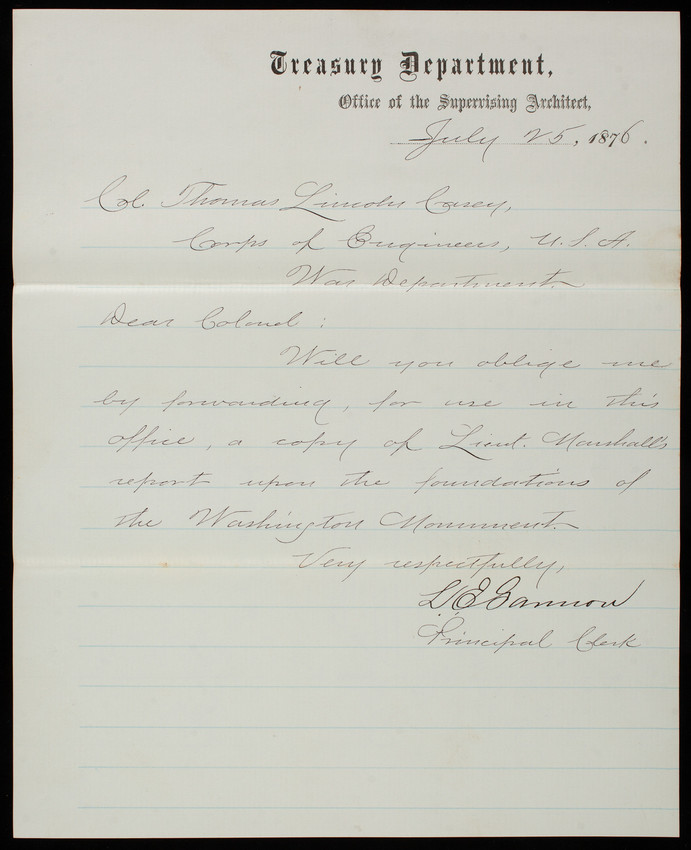 Treasury Department,
Office of the Supervising Architect,
July 25, 1876.
Col. Thomas Lincoln Casey,
Corps of Engineers, U.S.A.
War Department.
Dear Colonel:
Will you oblige me
by forwarding, for use in this
office, a copy of Lieut. Marshall's
report upon the foundations of
the Washington Monument.
Very respectfully,
L. E. Gannon
Principal Clerk